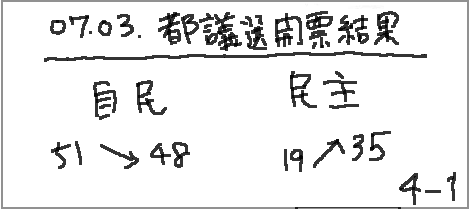 07.03. 都議選開票結果
自民 民主
51 ↘ 48 19 ↗ 35
4-1